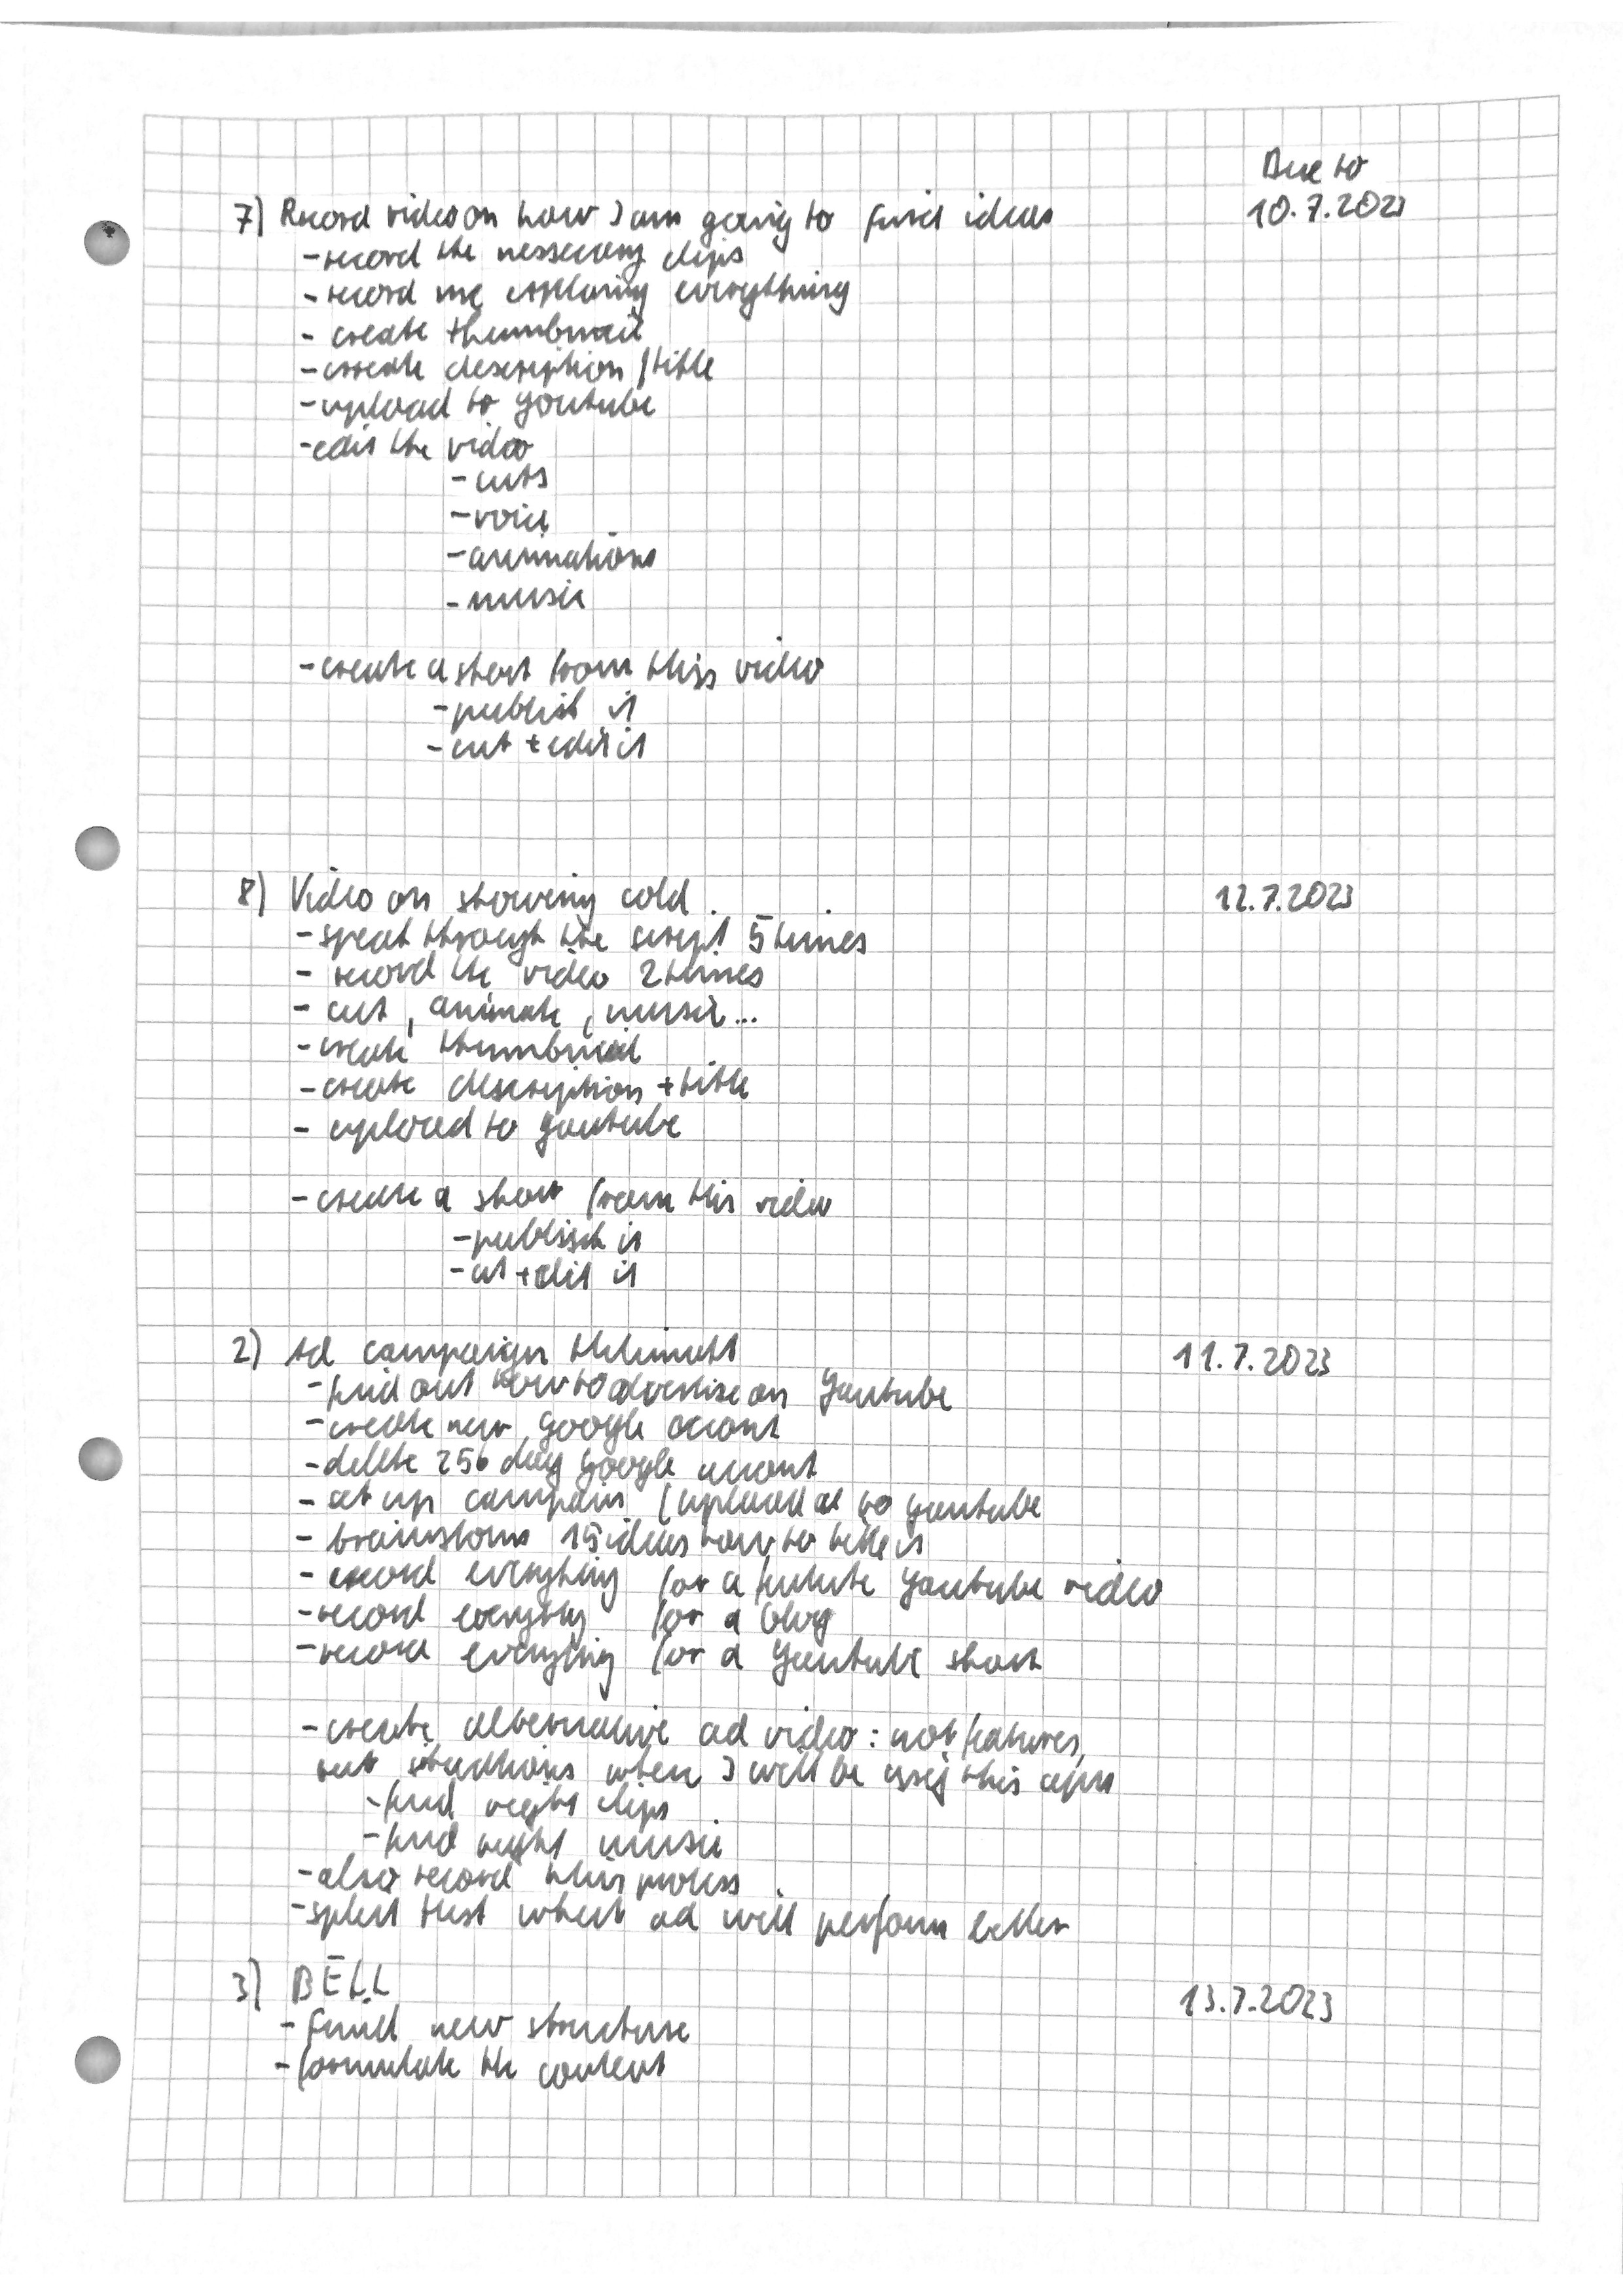 Due to
7) Record video on how I am going to find ideas 10.7.2023
- record the nessecary clips
- record me explaining everything
- create thumbnail
- create description / title
- upload to youtube
- edit the video
- cuts
- voice
- animations
- music
- create a short from this video
- publish it
- cut + edit it
8) Video on showering cold 12.7.2023
- speak through the script 5 times
- record the video 2 times
- cut, animate, music...
- create thumbnail
- create description + title
- upload to youtube
- create a short from this video
- publisch it
- cut + edit it
2) Ad campaign 11.7.2023
- find out how to advertise on Youtube
- create new google account
- delete 256 day google account
- set up campain (upload ad to youtube
- brainstorm 15 ideas how to title it
- record everything for a future Youtube video
- record everything for a blog
- record everything for a Youtube short
- create alternative ad video: not features,
but situations when I will be using this app
- find right clips
- find right music
- also record this process
- split test which ad will perform better
3) BELL 13.7.2023
- find new structure
- formulate the content